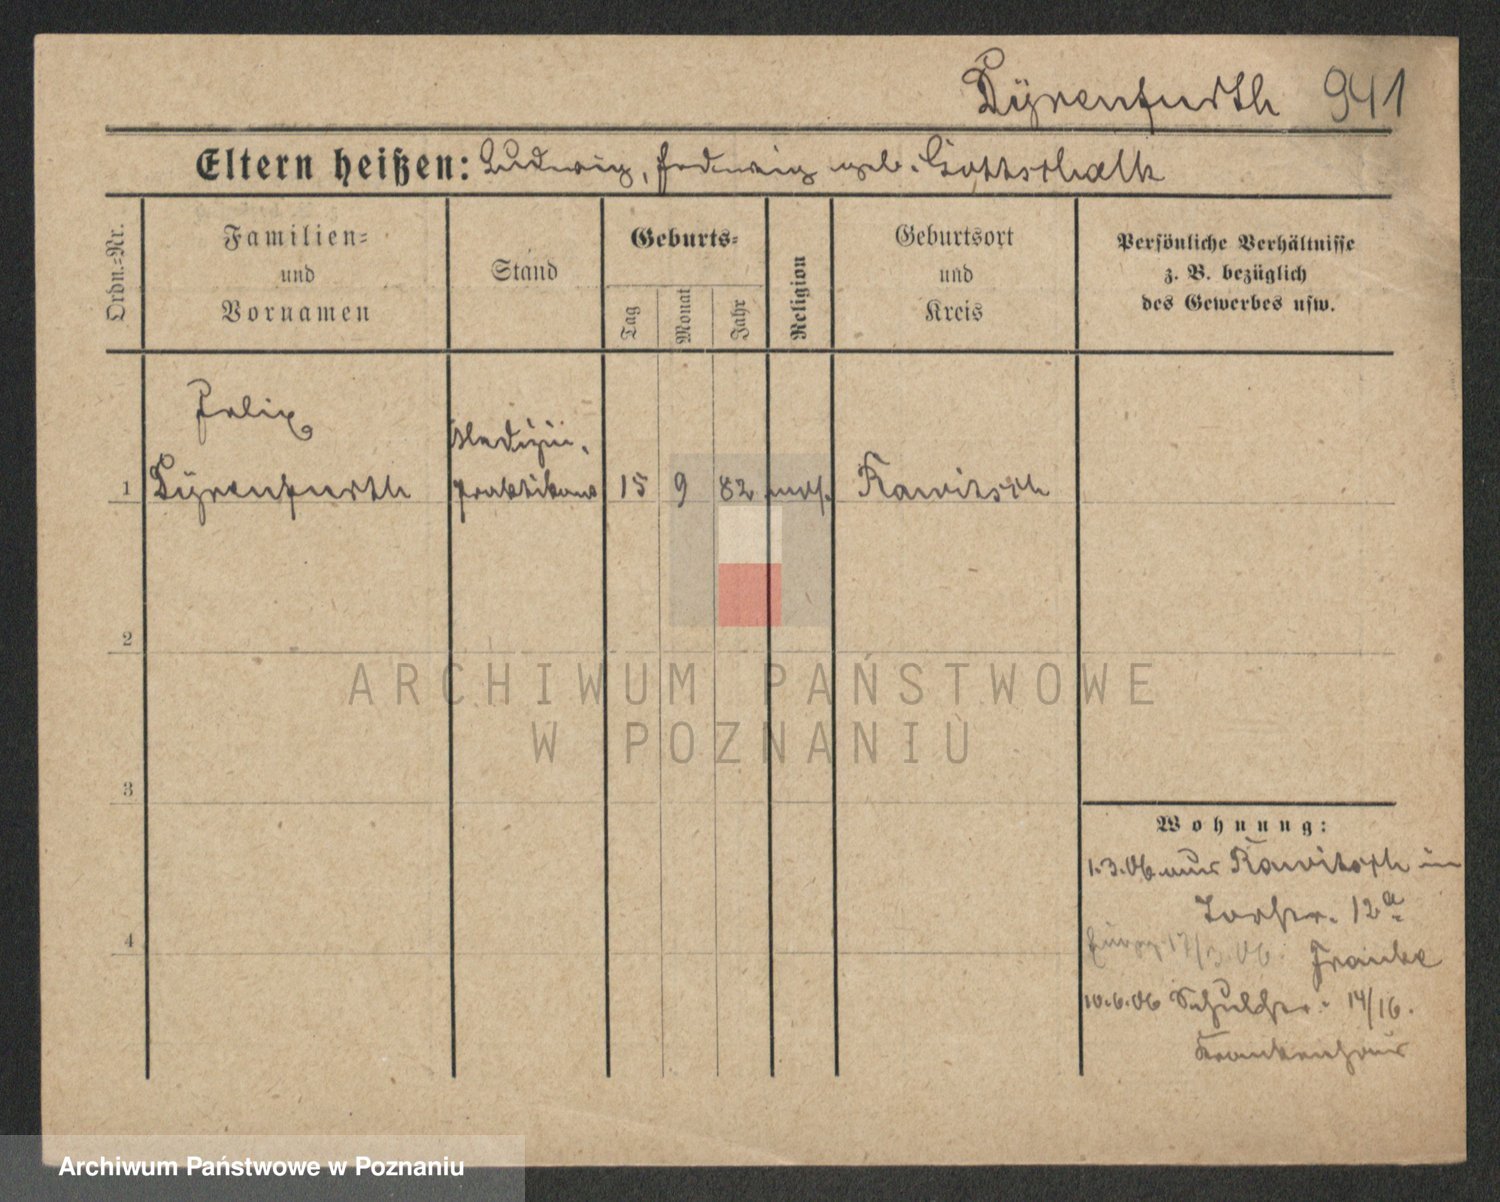 Dÿrenfurth 941
Eltern heißen: Ludwig, Hedwig geb. Gottschalk
Ordn.=Nr.
Familien=
und
Vornamen
Stand
Geburts=
Tag
Monat
Jahr
Religion
Geburtsort
und
Kreis
Persönliche Verhältnisse
z. B. bezüglich
des Gewerbes usw.
Felix
Medizin.
1 Dÿrenfurth praktikant 15 9 82 mos. Rawitsch
2
3
4
ARCHIWUM PAŃSTWOWE
W POZNANIU
Wohnung:
1.3.06 aus Rawitsch in
12a
17/3 06. Franke
10.6.06 Schulstr. 14/16.
Krankenhaus
Archiwum Państwowe w Poznaniu